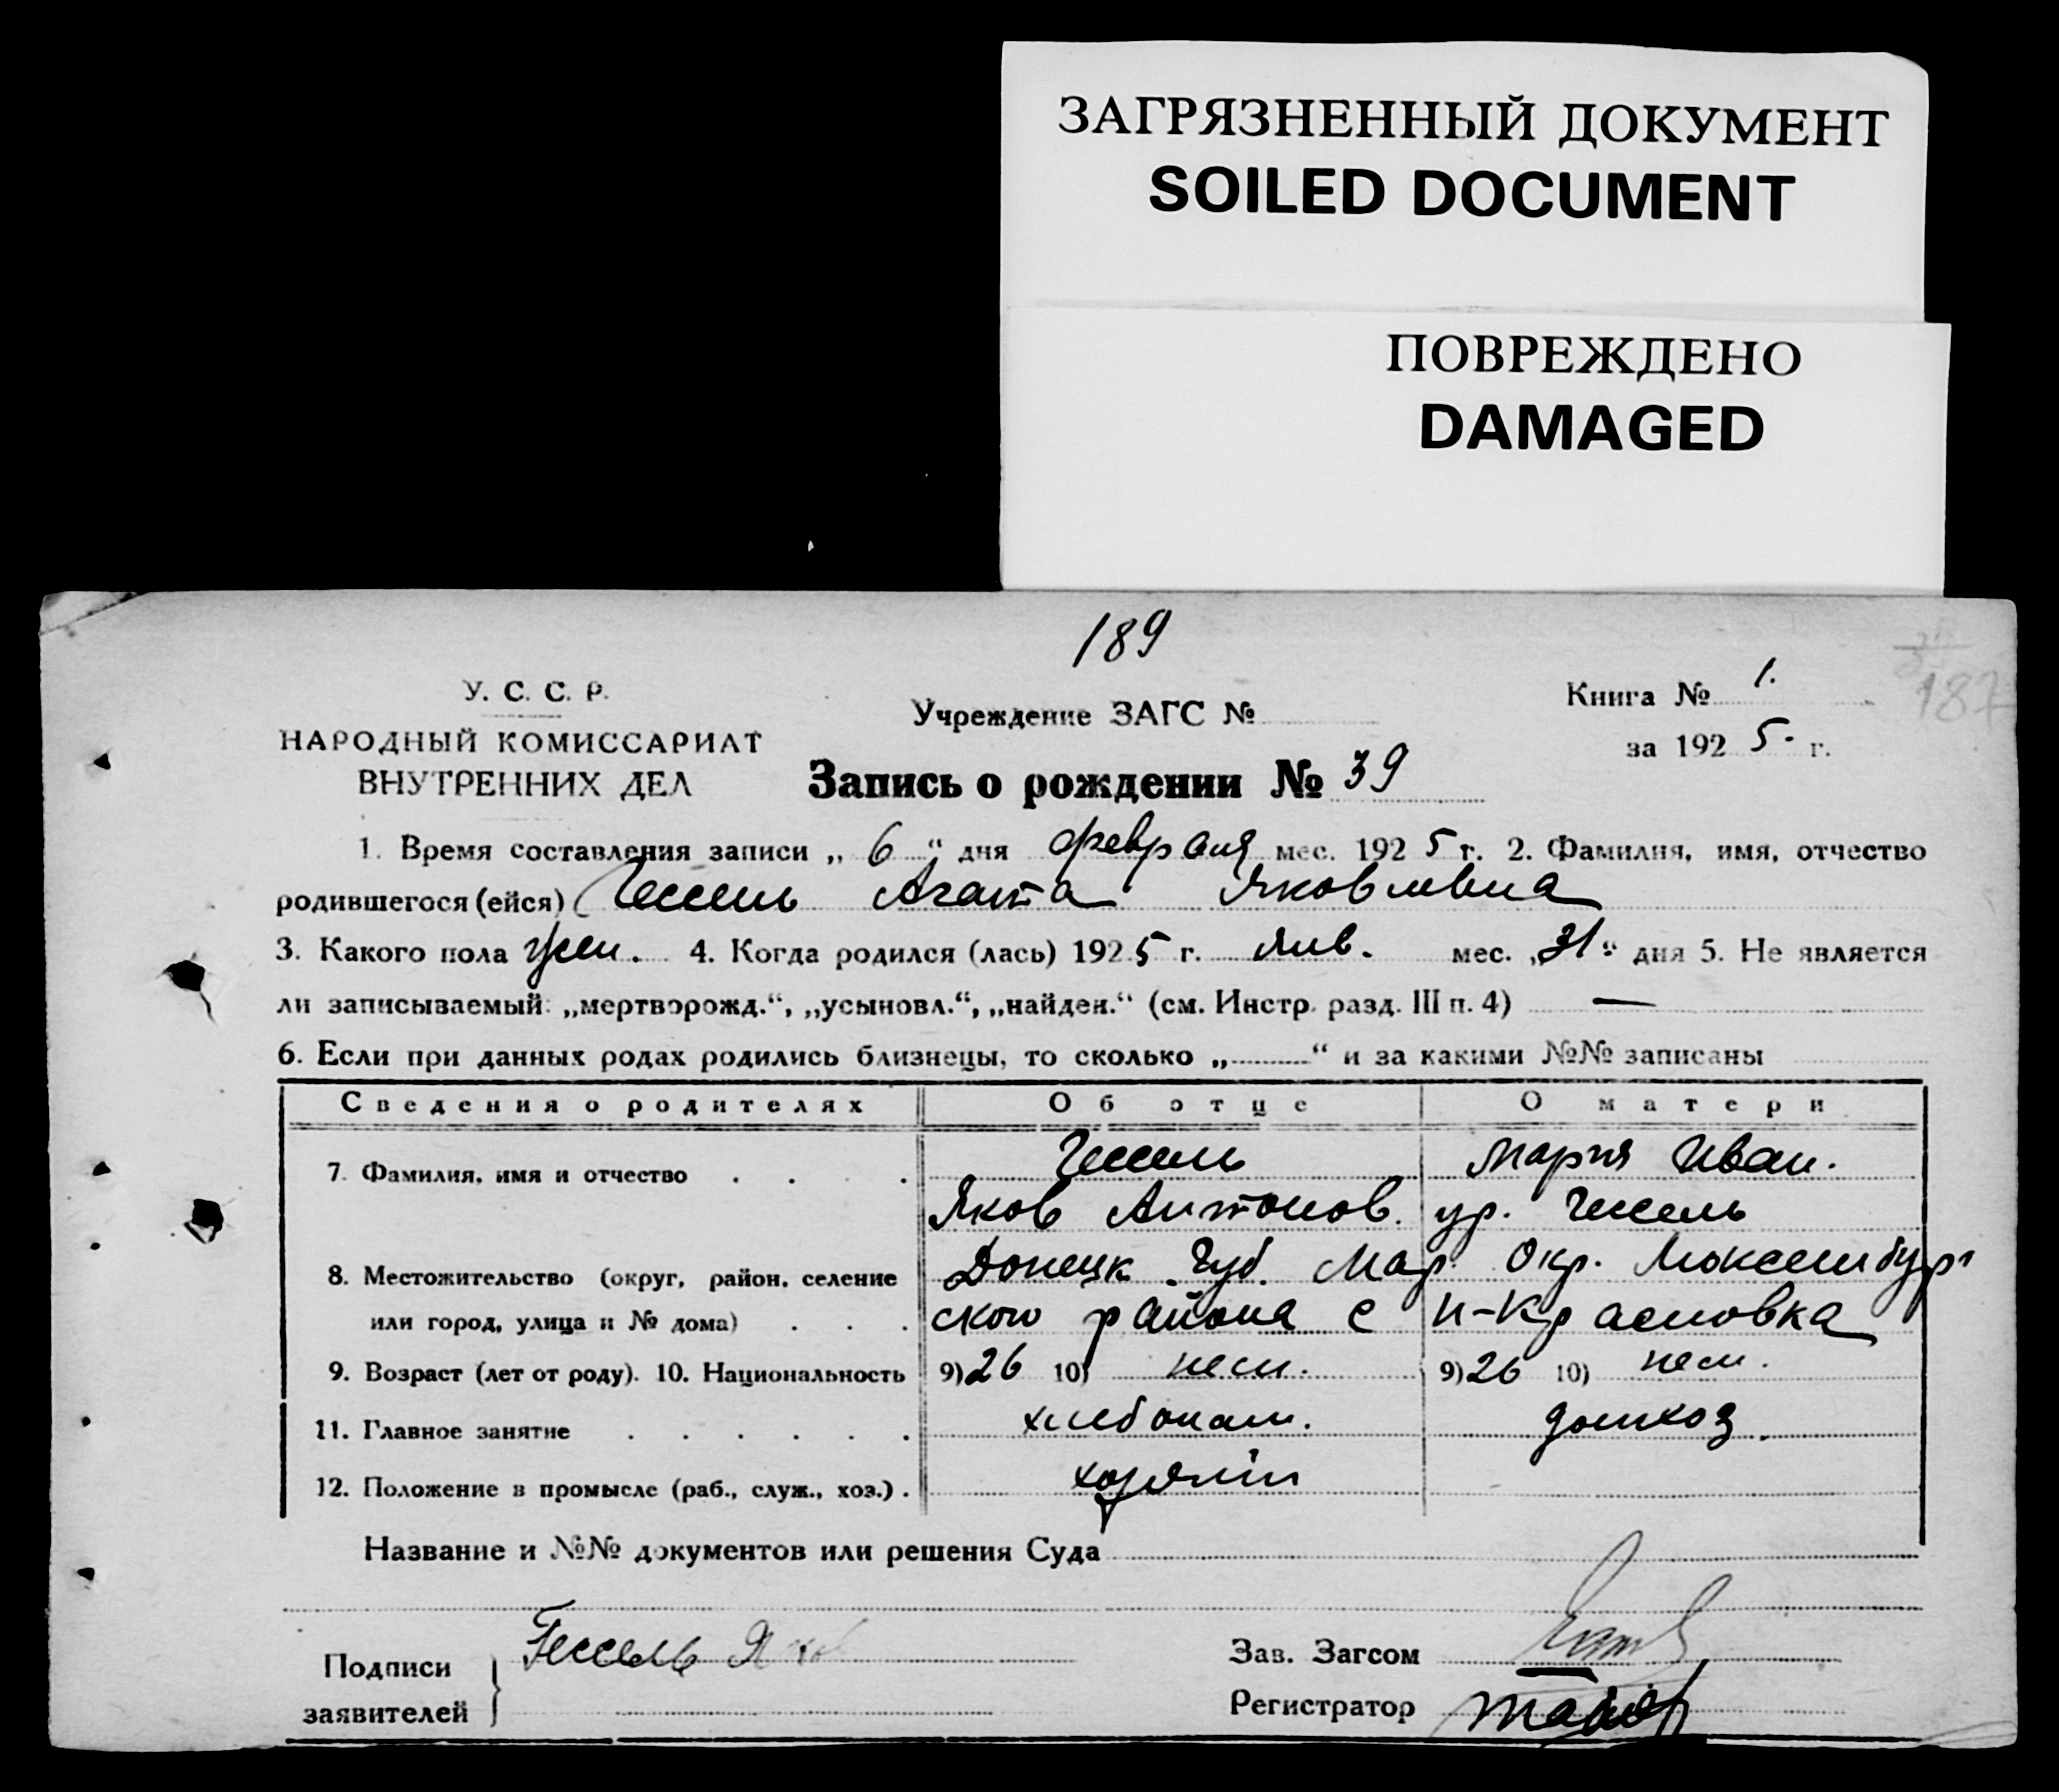 ЗАГРЯЗНЕННЫЙ ДОКУМЕНТ
SOILED DOCUMENT
ПОВРЕЖДЕНО
DAMAGED
189
187
У. С. С. Р.
НАРОДНЫЙ КОМИССАРИАТ
ВНУТРЕННИХ ДЕЛ
Учреждение ЗАГС №
Книга № 1.
за 1925 г.
Запись о рождении № 39
1. Время составления записи „ 6 “ дня февраля мес. 1925 г. 2. Фамилия, имя, отчество
родившегося (ейся) Гессель Агата Яковлевна
3. Какого пола жен. 4. Когда родился (лась) 1925 г. янв. мес. „31“ дня 5. Не является
ли записываемый: „мертворожд.“, „усыновл.“, „найден.“ (см. Инстр. разд. III п. 4) —
6. Если при данных родах родились близнецы, то сколько „ “ и за какими №№ записаны
Сведения о родителях Об отце О матери
7. Фамилия, имя и отчество Гессель Мария Иван.
Яков Антонов. ур. Гессель
8. Местожительство (округ, район, селение Донецк. Губ. Мар. Окр. Люксембург
или город, улица и № дома) ского района с Н-Красновка
9. Возраст (лет от роду). 10. Национальность 9) 26 10) нем. 9) 26 10) нем.
11. Главное занятие хлебопаш. домхоз.
12. Положение в промысле (раб., служ., хоз.) хозяин
Название и №№ документов или решения Суда
Подписи заявителей } Гессель Як
Зав. Загсом
Регистратор